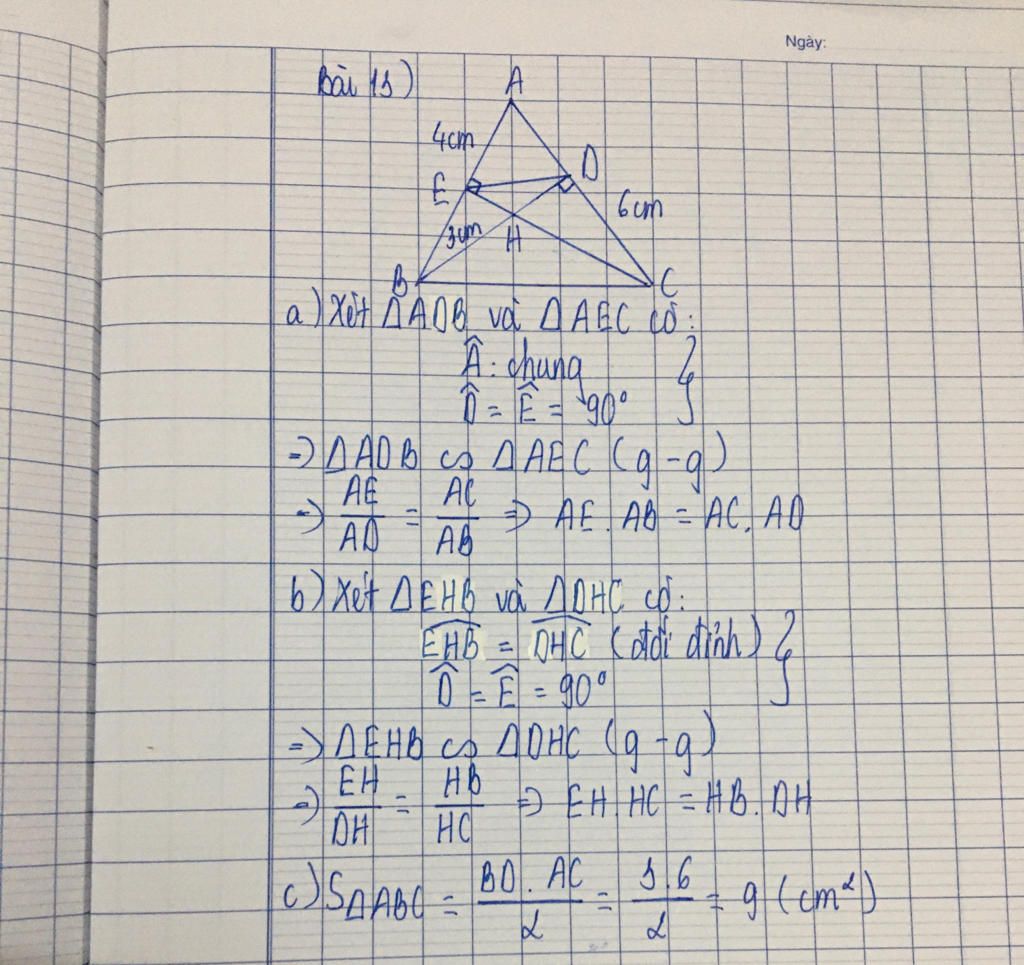 Ngày:
Bài 11)
A
4cm
D
E
6cm
3cm
H
B
C
a) Xét ΔADB và ΔAEC có:
Â: chung
D̂ = Ê = 90°
=> ΔADB ∽ ΔAEC (g-g)
=> AE/AD = AC/AB => AE.AB = AC.AD
b) Xét ΔEHB và ΔDHC có:
EHB̂ = DHĈ (đối đỉnh)
D̂ = Ê = 90°
=> ΔEHB ∽ ΔDHC (g-g)
=> EH/DH = HB/HC => EH.HC = HB.DH
c) SΔABC = BD.AC/2 = 3.6/2 = 9 (cm²)